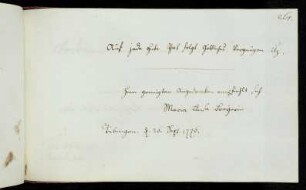 269.
Auf jede gute That folgt Göttliches Vergnügen
Zum geneigten Angedenken empfiehlt sich
Maria
Tubingen d. 20. Sept. 1776.